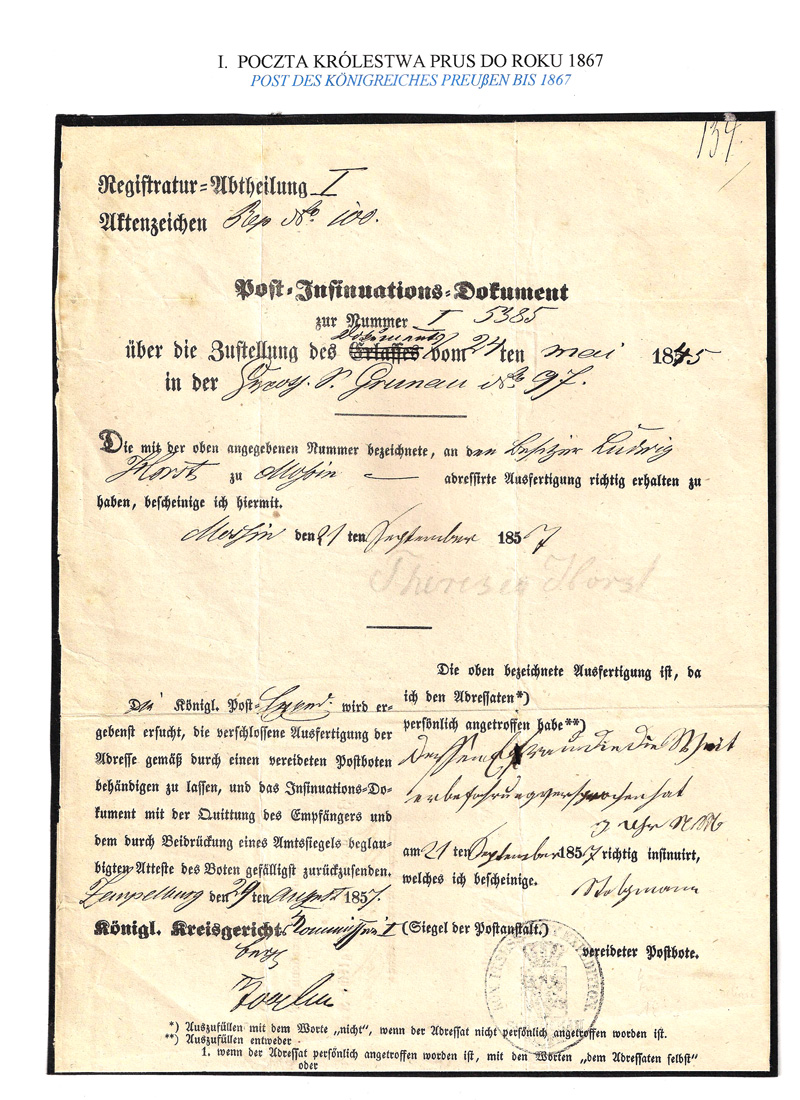 I. POCZTA KRÓLESTWA PRUS DO ROKU 1867
POST DES KÖNIGREICHES PREUßEN BIS 1867
134.
Registratur-Abtheilung I
Aktenzeichen Rep No. 100.
Post-Insinuations-Dokument
zur Nummer I 5385
Dokuments
über die Zustellung des Erlasses vom 24ten Mai 1845
in der S. Grunau No 97.
Die mit der oben angegebenen Nummer bezeichnete, an den Besitzer Ludwig
Horst zu Mossin — adressirte Ausfertigung richtig erhalten zu
haben, bescheinige ich hiermit.
Mossin den 21 ten September 1857
Therese Horst
Die oben bezeichnete Ausfertigung ist, da
ich den Adressaten*)
persönlich angetroffen habe**)
dessen Frau die die Weit
erbeförderung versprochen hat
Uhr NM
am 21 ten September 1857 richtig insinuirt,
welches ich bescheinige.
Stolzmann
(Siegel der Postanstalt.)
vereideter Postbote.
Die Königl. Post-Exped. wird er-
gebenst ersucht, die verschlossene Ausfertigung der
Adresse gemäß durch einen vereideten Postboten
behändigen zu lassen, und das Insinuations-Do-
kument mit der Quittung des Empfängers und
dem durch Beidrückung eines Amtsiegels beglau-
bigten Atteste des Boten gefälligst zurückzusenden.
Zempelburg den 29 ten August 1857.
Königl. Kreisgericht. Kommission I
*) Auszufüllen mit dem Worte „nicht“, wenn der Adressat nicht persönlich angetroffen worden ist.
**) Auszufüllen entweder
1. wenn der Adressat persönlich angetroffen worden ist, mit den Worten „dem Adressaten selbst“
oder